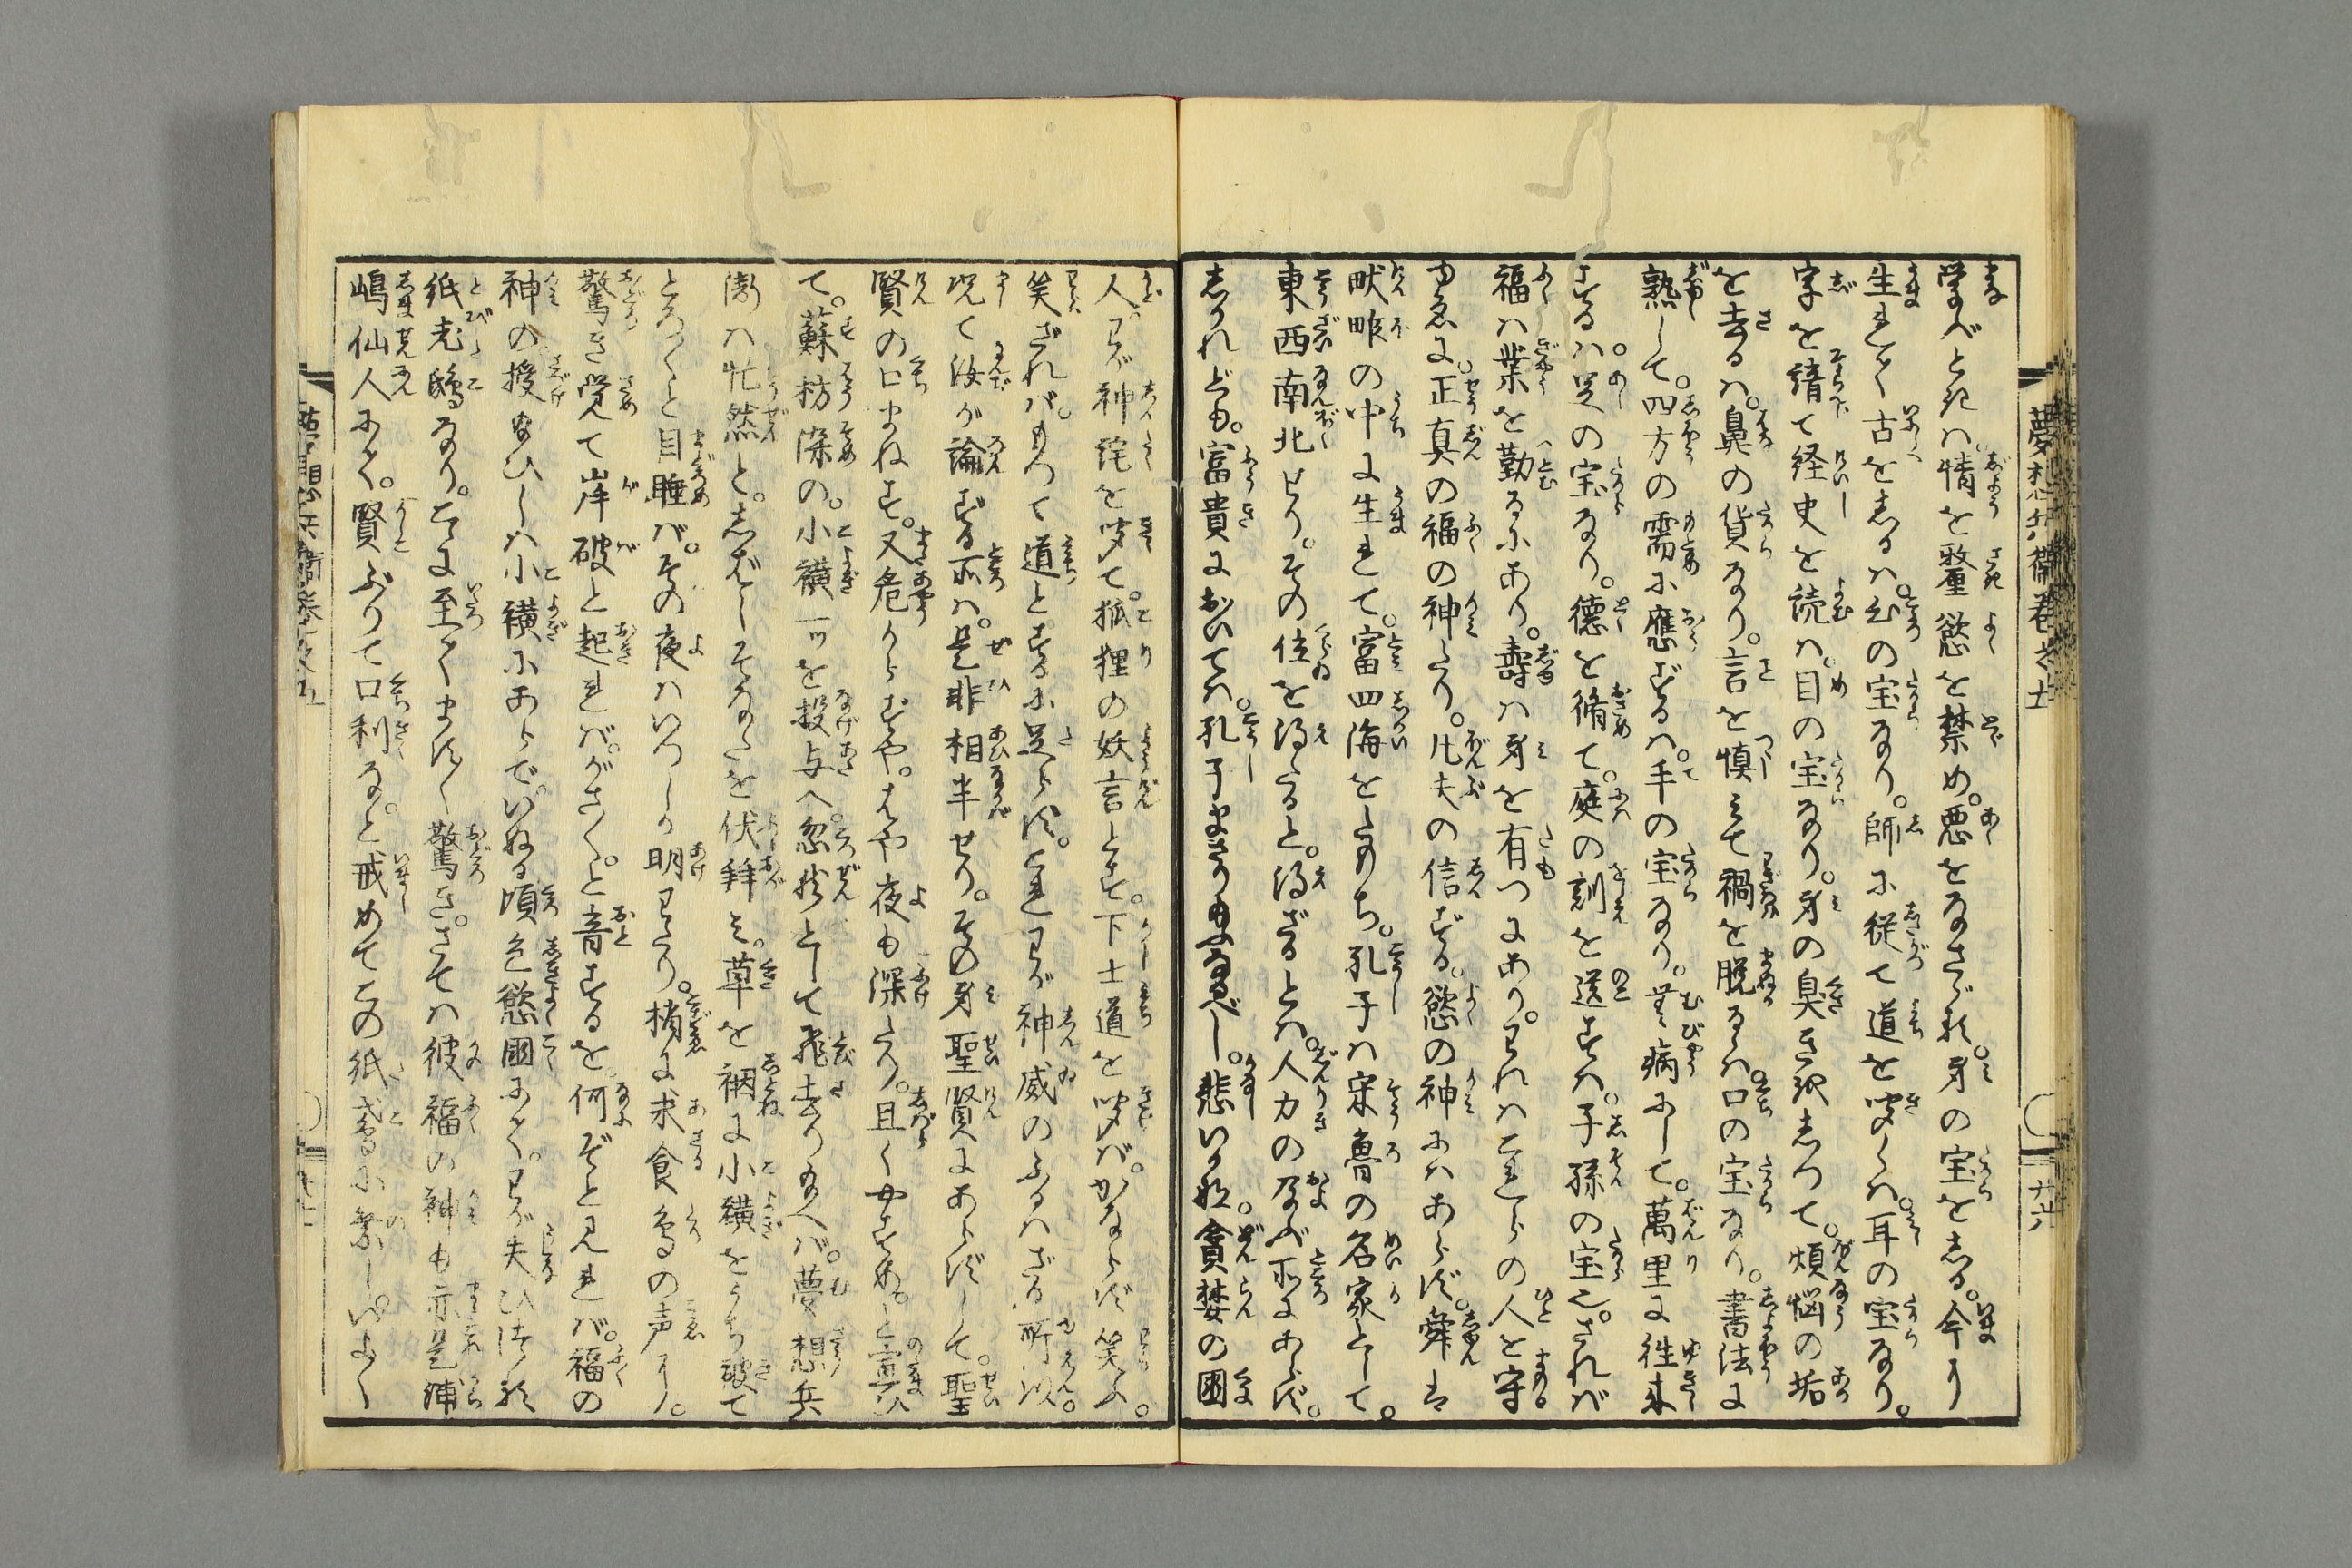 夢想兵衛巻之五
学べとき八情を整慾を禁め。悪をなさゞれ。身の宝をしる。今に
生れて古をしるハ。心の宝なり。師に従て道を聞くハ。耳の宝なり。
字を績て経史を読ハ。目の宝なり。身の臭きをしつて。煩悩の垢
を去るハ。鼻の貨なり。言を慎みて禍を脱るゝハ口の宝なり。書法に
熟して。四方の需に應ずるハ。手の宝なり。無病にして。萬里に往来
するハ。足の宝なり。徳を脩て。庭の訓を送すハ。子孫の宝也。されバ
福ハ業を勤るにあり。壽ハ身を有つにあり。われハこれらの人を守
ゆゑに。正真の福の神たり。凡夫の信ずる。慾の神にハあらず。舜ハ
畎畂の中に生れて。富四海をたもち。孔子ハ宋魯の名家として。
東西南北せり。その位を得たると。得ざるとハ。人力の及ぶ所にあらず。
しかれども。富貴においてハ。孔子まさり給ふなるべし。悲いかな。貪婪の国
人。わが神詫を聞て。狐狸の妖言とす。下士道を聞バ。かならず笑ふ。
笑ざれバ。もつて道とするに足らず。これわが神威のふるハざる所以。
况て汝が論ずる所ハ。是非相半せり。その身聖賢にあらずして。聖
賢の口まねす。又危からずや。はや夜も深たり。且く安すめ。と宣ひ
て。蘇枋染の。小襀一ッを投与へ。忽然として飛去り給へバ。夢想兵
衛ハ忙然と。しばしそなたを伏拜み。草を裀に小襀をうち被て
とろ〳〵と目睡バ。その夜ハいつしか明わたり。梢に求食鳥の声に。
驚き覚て岸破と起れバ。がさ〳〵。と音するを。何ぞと見れバ。福の
神の授給ひしハ小襀にあらで。いぬる頃色慾國にて。わが失ひつる
紙老鴟なり。こゝに至てます〳〵驚き。さてハ彼福の神も亦是浦
嶋仙人にて。賢ぶりて口利な。と戒めてこの紙鳶に乗し。いよ〳〵